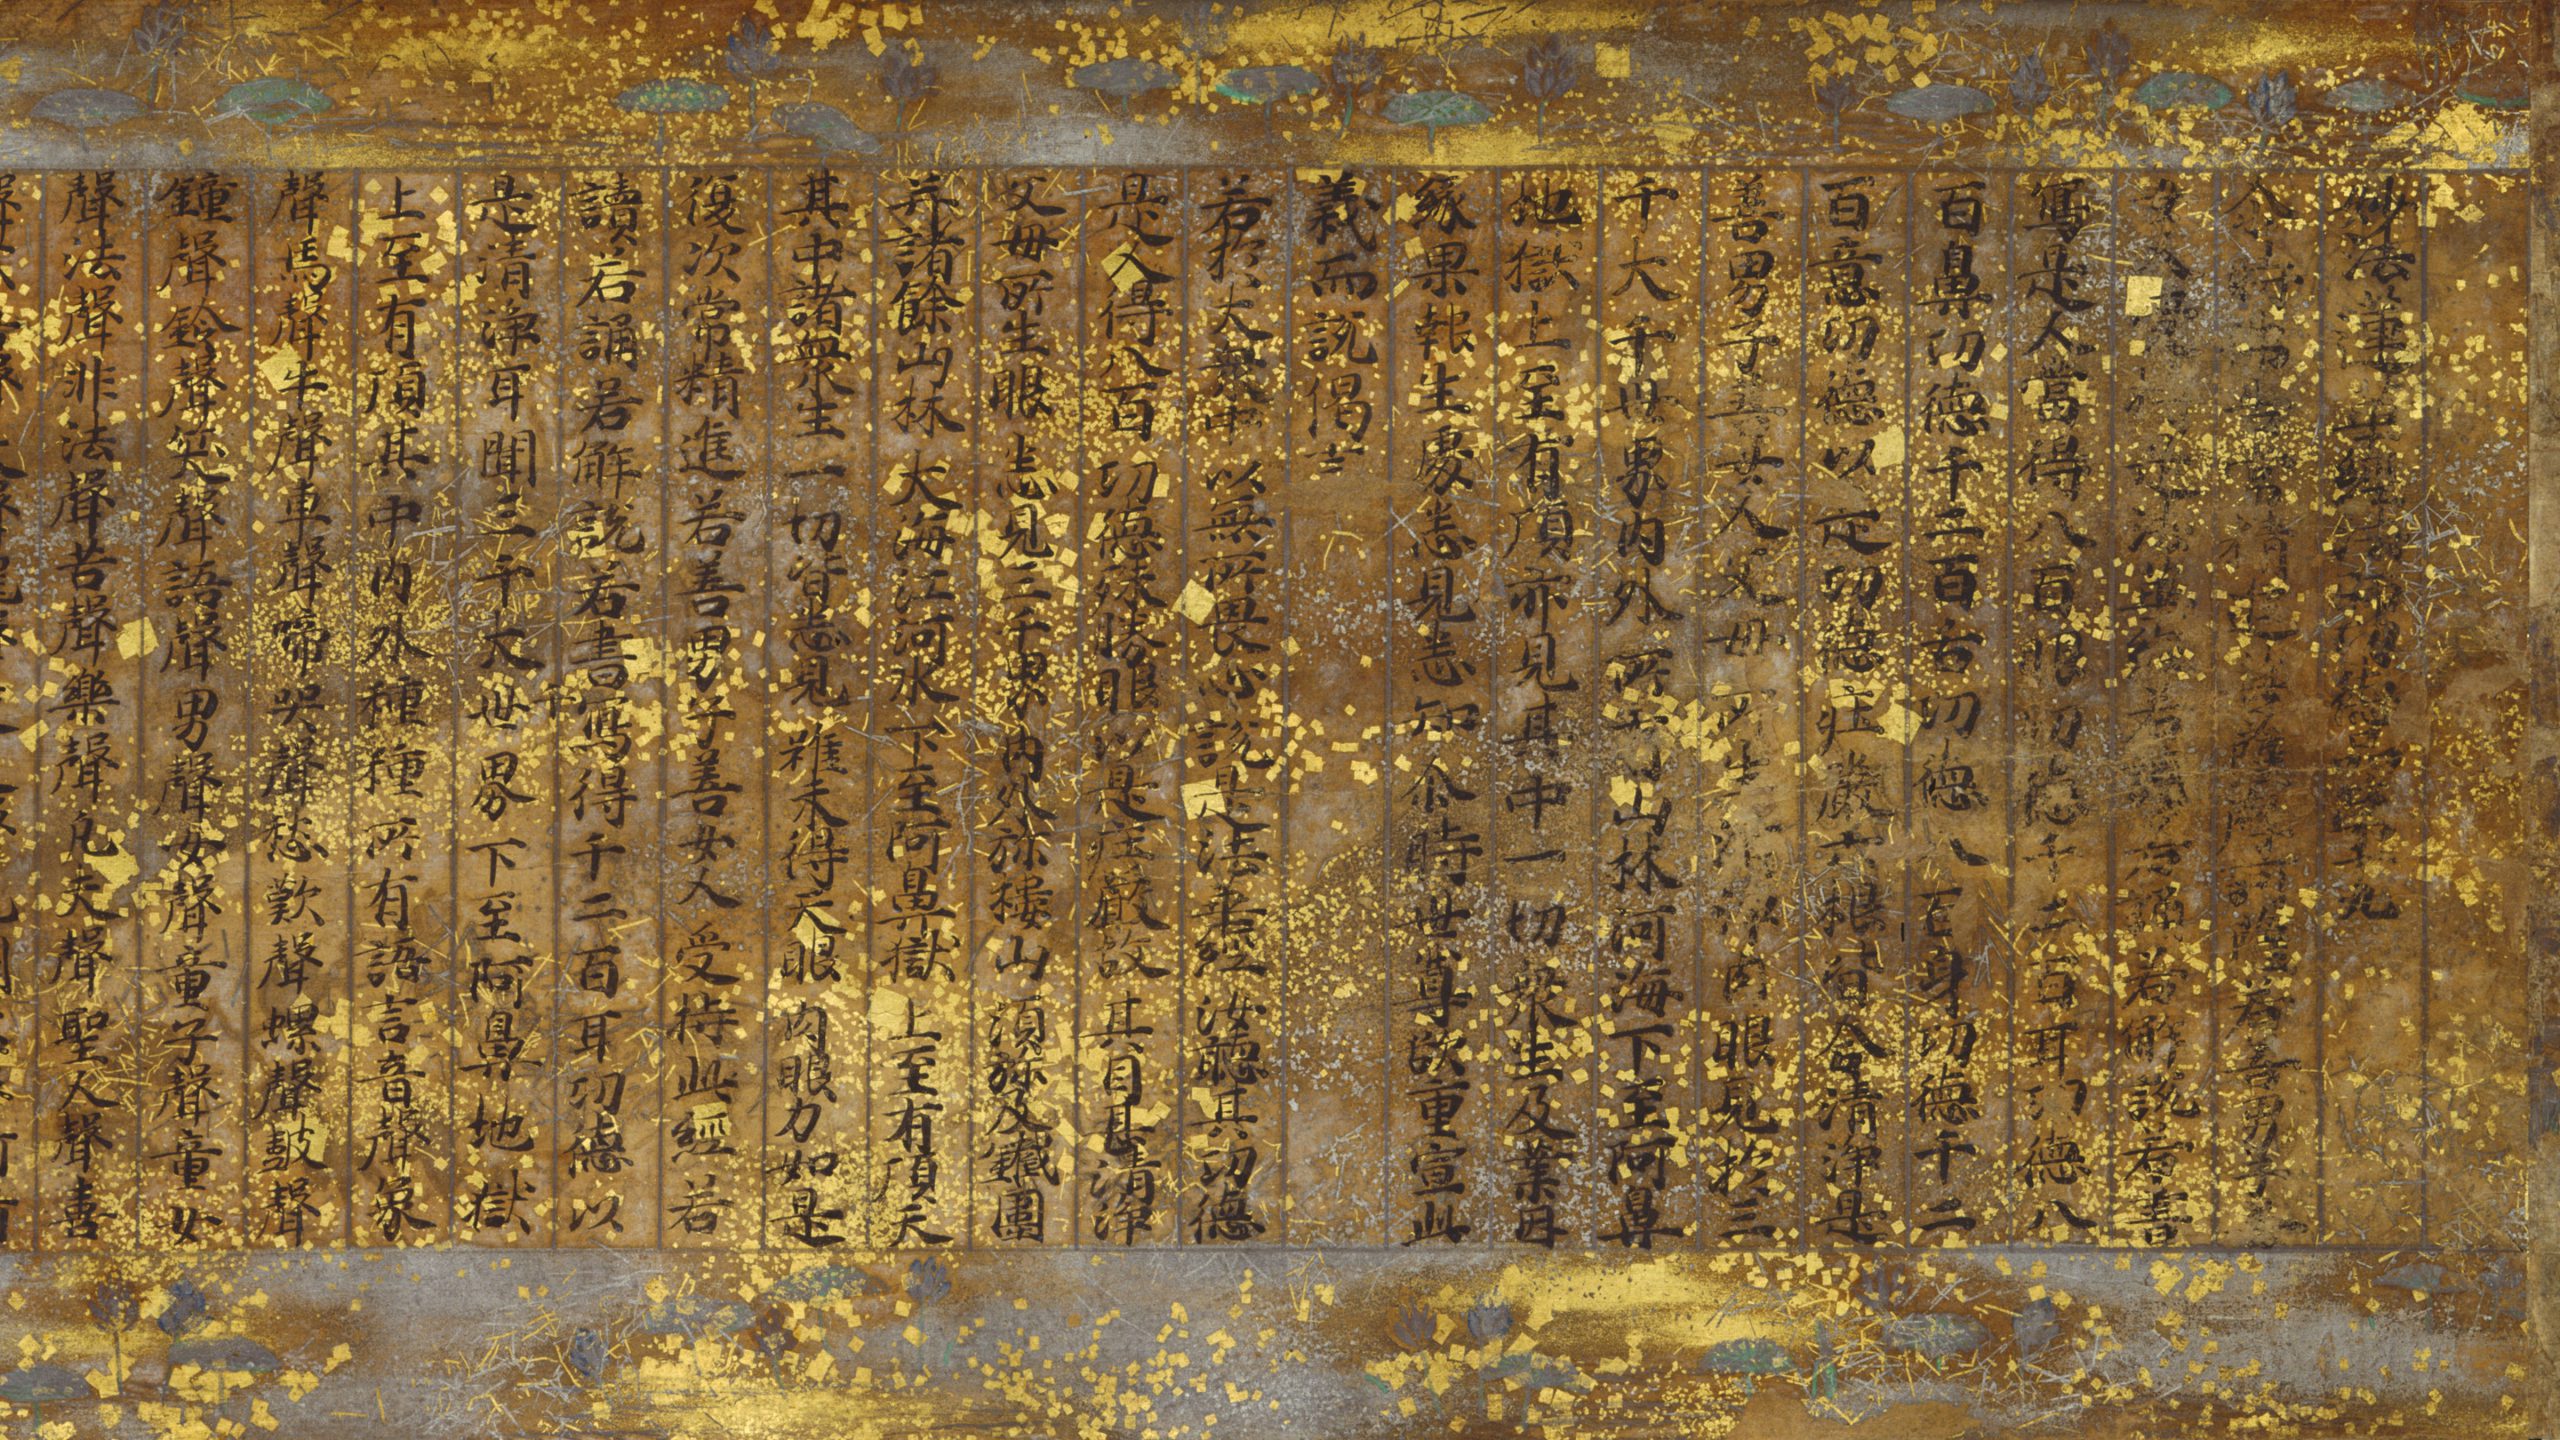 妙法蓮華經法師功德品第十九
尒時佛告常精進菩薩摩訶薩若善男子善
女人受持是法華經若讀若誦若解說若書
寫是人當得八百眼功德千二百耳功德八
百鼻功德千二百舌功德八百身功德千二
百意功德以是功德莊嚴六根皆令清淨是
善男子善女人父母所生清淨肉眼見於三
千大千世界內外所有山林河海下至阿鼻
地獄上至有頂亦見其中一切眾生及業因
緣果報生處悉見悉知尒時世尊欲重宣此
義而說偈言
若於大眾中 以無所畏心 說是法華經 汝聽其功德
是人得八百 功德殊勝眼 以是莊嚴故 其目甚清淨
父母所生眼 悉見三千界 內外弥樓山 須弥及鐵圍
并諸餘山林 大海江河水 下至阿鼻獄 上至有頂天
其中諸眾生 一切皆悉見 雖未得天眼 肉眼力如是
復次常精進若善男子善女人受持此經若
讀若誦若解說若書寫得千二百耳功德以
是清淨耳聞三千大千世界下至阿鼻地獄
上至有頂其中內外種種所有語言音聲象
聲馬聲牛聲車聲啼哭聲愁歎聲螺聲鼓聲
鐘聲鈴聲笑聲語聲男聲女聲童子聲童女
聲法聲非法聲苦聲樂聲凡夫聲聖人聲喜